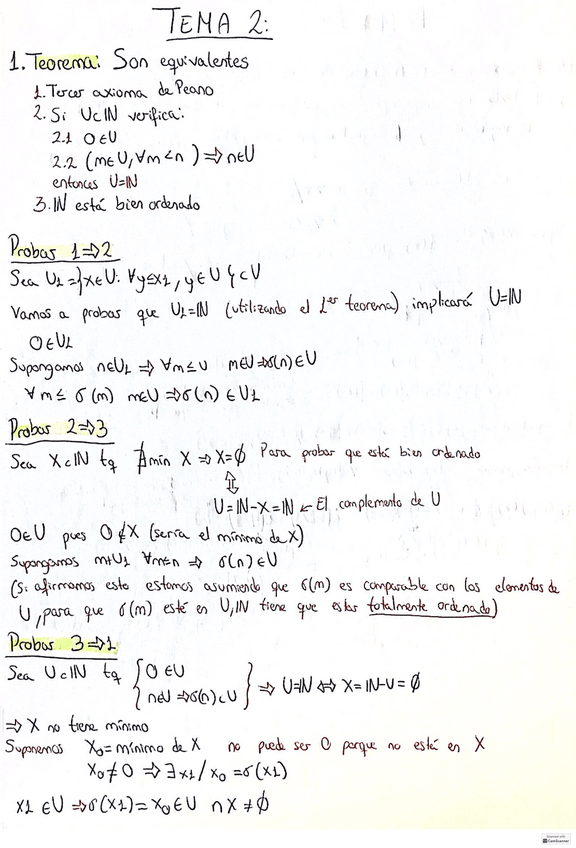 TEMA 2:
1. Teorema: Son equivalentes
1. Tercer axioma de Peano
2. Si U⊂ℕ verifica:
2.1 0∈U
2.2 (m∈U, ∀m<n) ⇒ n∈U
entonces U=ℕ
3. ℕ está bien ordenado
Probar 1⇒2
Sea U₁={x∈U: ∀y≤x1, y∈U}⊂U
Vamos a probar que U₁=ℕ (utilizando el 1er teorema) implicará U=ℕ
0∈U₁
Supongamos n∈U₁ ⇒ ∀m≤u m∈U⇒σ(n)∈U
∀m≤ σ(m) m∈U ⇒σ(n)∈U₁
Probar 2⇒3
Sea X⊂ℕ tq ∄mín X ⇒ X=∅ Para probar que está bien ordenado
⇕
U=ℕ-X=ℕ ← El complemento de U
0∈U pues 0∉X (sería el mínimo de X)
Supongamos m∈U₁ ∀m≤n ⇒ σ(n)∈U
(Si afirmamos esto estamos asumiendo que σ(m) es comparable con los elementos de
U, para que σ(m) esté en U, ℕ tiene que estar totalmente ordenado)
Probar 3⇒1
Sea U⊂ℕ tq { 0∈U
n∈U ⇒σ(n)⊂U } ⇒ U=ℕ ⇔ X=ℕ-U=∅
⇒ X no tiene mínimo
Suponemos X₀=mínimo de X no puede ser 0 porque no está en X
X₀≠0 ⇒ ∃x1/x₀=σ(x1)
x1∈U ⇒σ(x1)=x₀∈U ∩X≠∅
Scanned with
CamScanner